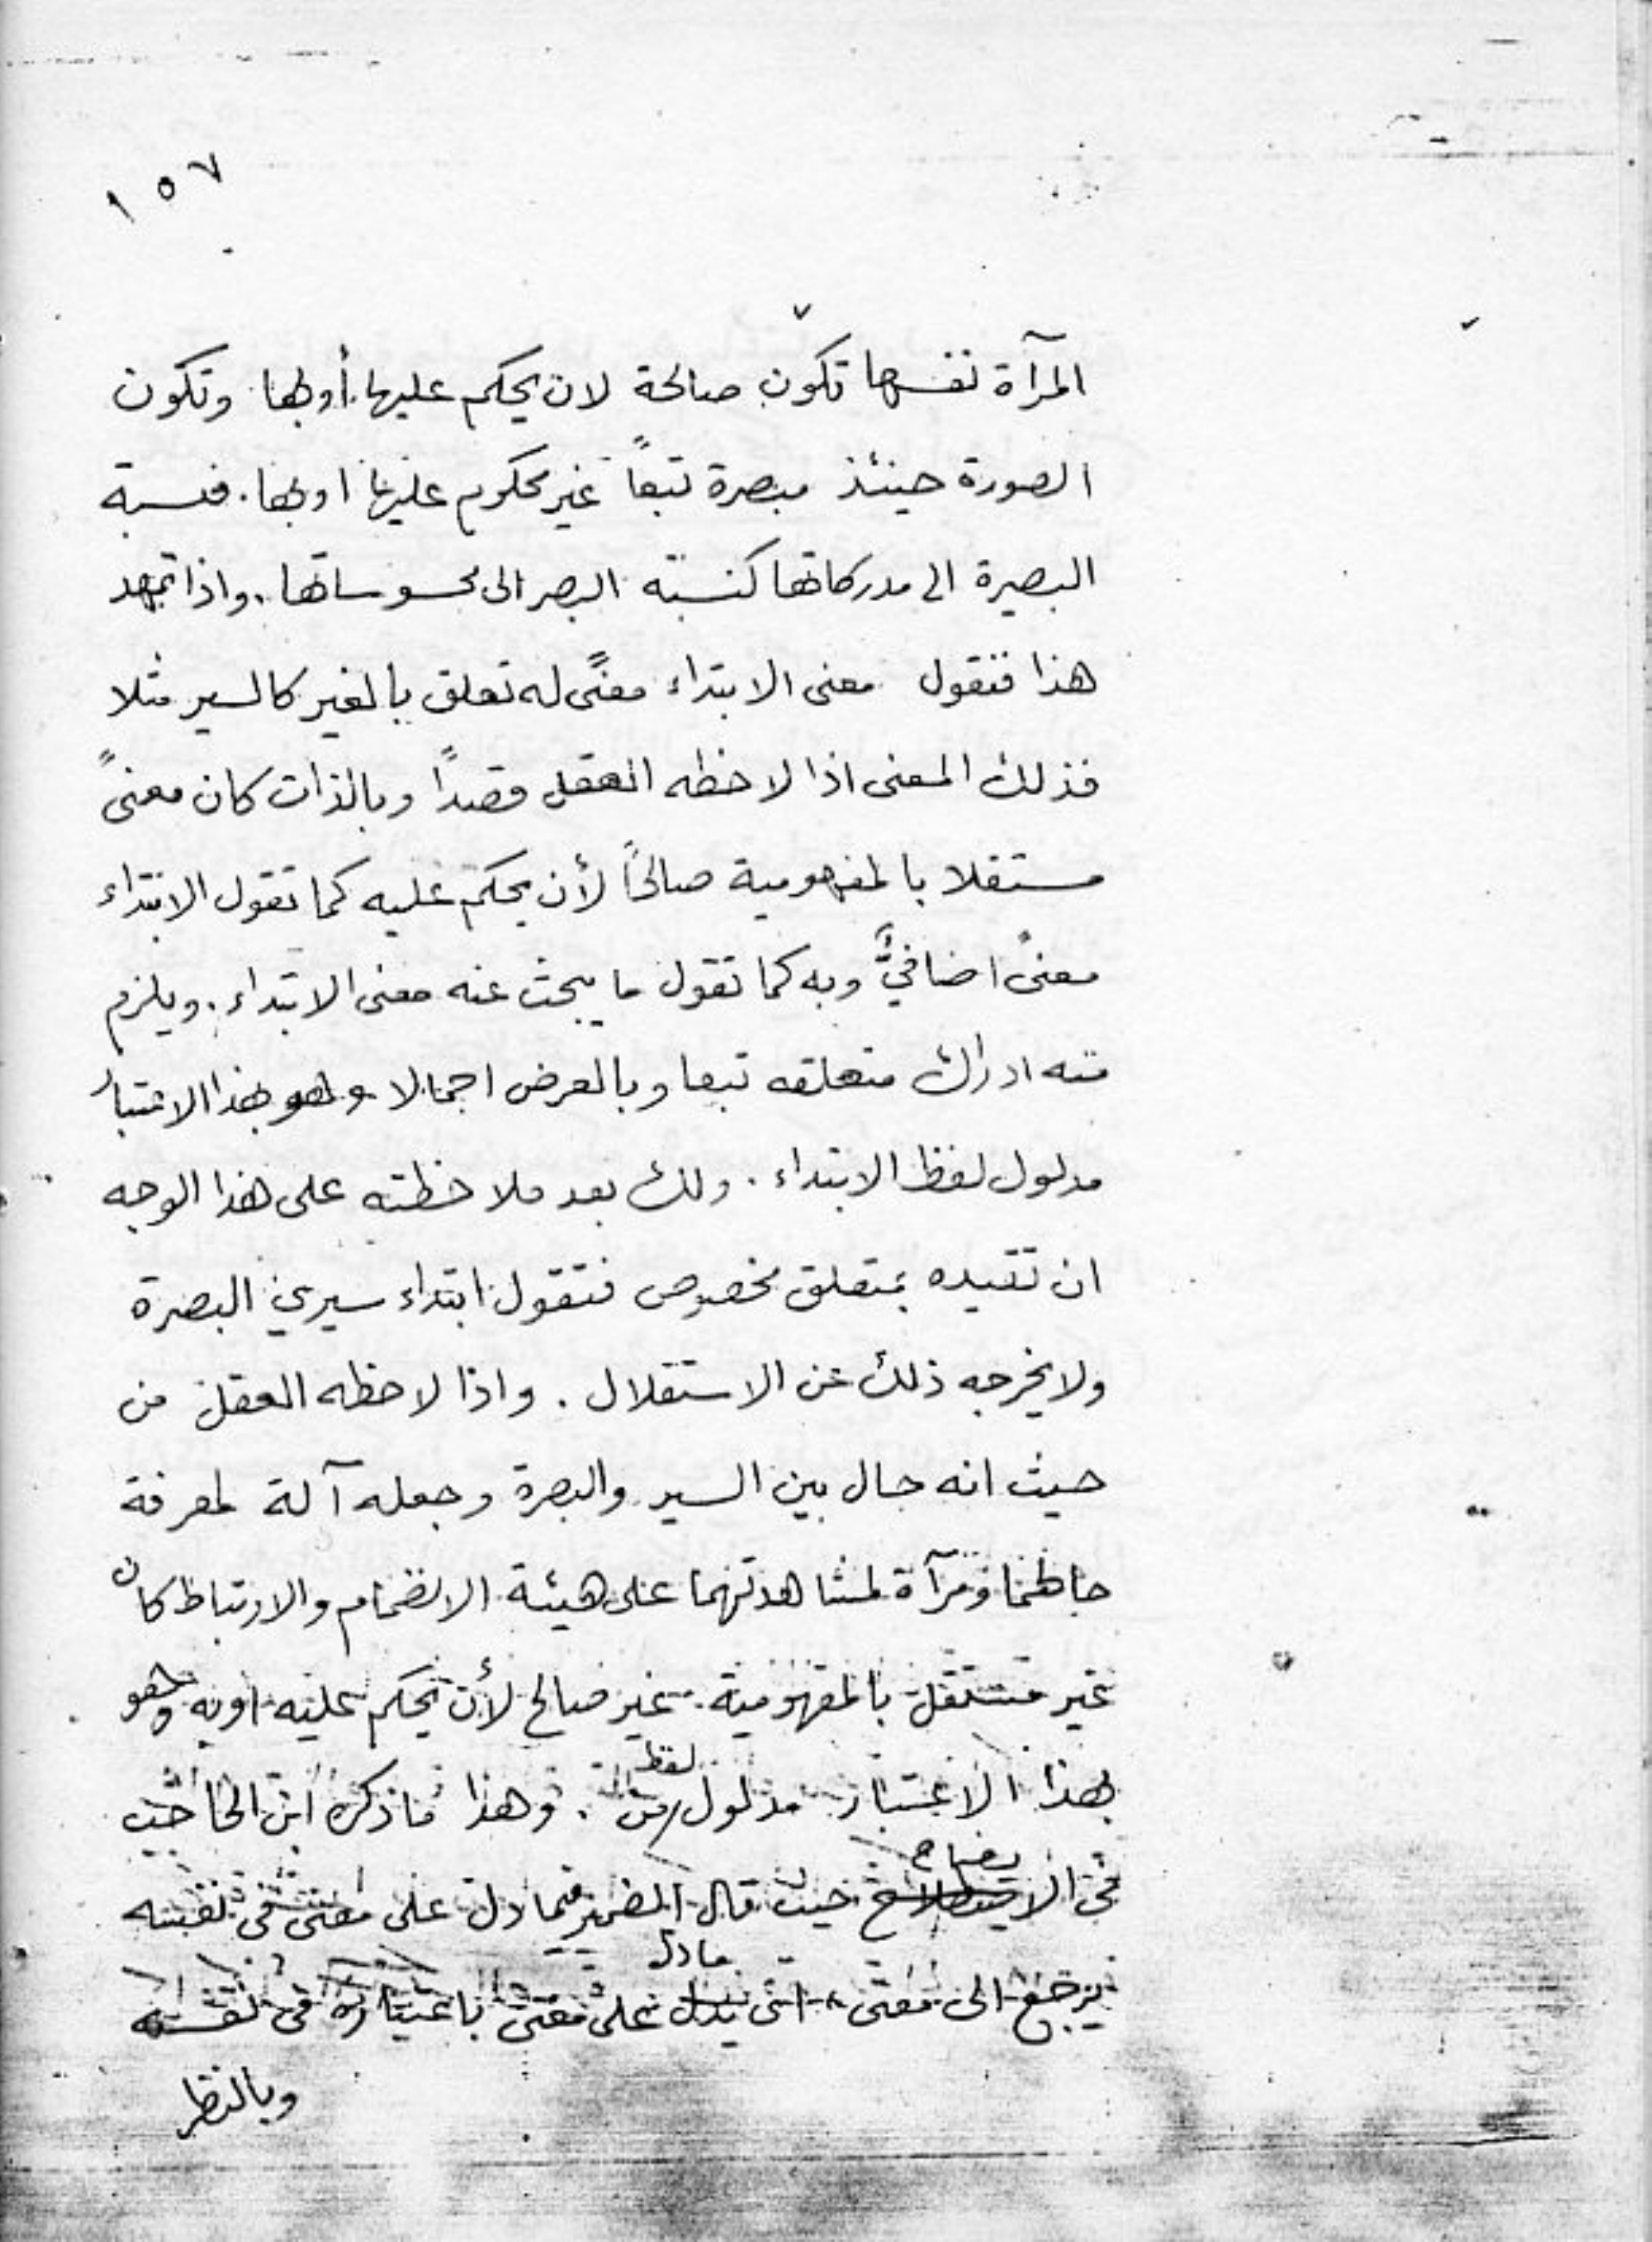 ١٥٧
٧
المرآة نفسها تكون صالحة لان يحكم عليها أو بها وتكون
الصورة حينئذ مبصرة تبعاً غير محكوم عليها او بها . فنسبة
البصيرة الى مدركاتها كنسبة البصر الى محسوساتها . واذا تمهد
هذا فنقول معنى الابتداء معنًى له تعلق بالغير كالسير مثلا
فذلك المعنى اذا لاحظه العقل قصداً وبالذات كان معنىً
مستقلا بالمفهومية صالحاً لأن يحكم عليه كما تقول الابتداء
معنىً اضافيٌّ وبه كما تقول ما يبحث عنه معنى الابتداء . ويلزم
منه ادراك متعلقه تبعا وبالعرض اجمالا وهو بهذا الاعتبار
مدلول لفظ الابتداء . ولك بعد ملاحظته على هذا الوجه
ان تقيده بمتعلق مخصوص فتقول ابتداء سيري البصرة
ولا يخرجه ذلك عن الاستقلال . واذا لاحظه العقل من
حيث انه حال بين السير والبصرة وجعله آلة لمعرفة
حالهما ومرآة لمشاهدتهما على هيئة الانضمام والارتباط كان
غير مستقل بالمفهومية . غير صالح لأن يحكم عليه او به وهو
بهذا الاعتبار مدلول لفظ من . وهذا ما ذكره ابن الحاجب
في الايضاح حيث قال الضمير فيما دل على معنى في نفسه
يرجع الى معنى ، اى ما دل على معنى باعتباره في نفسه
وبالنظر